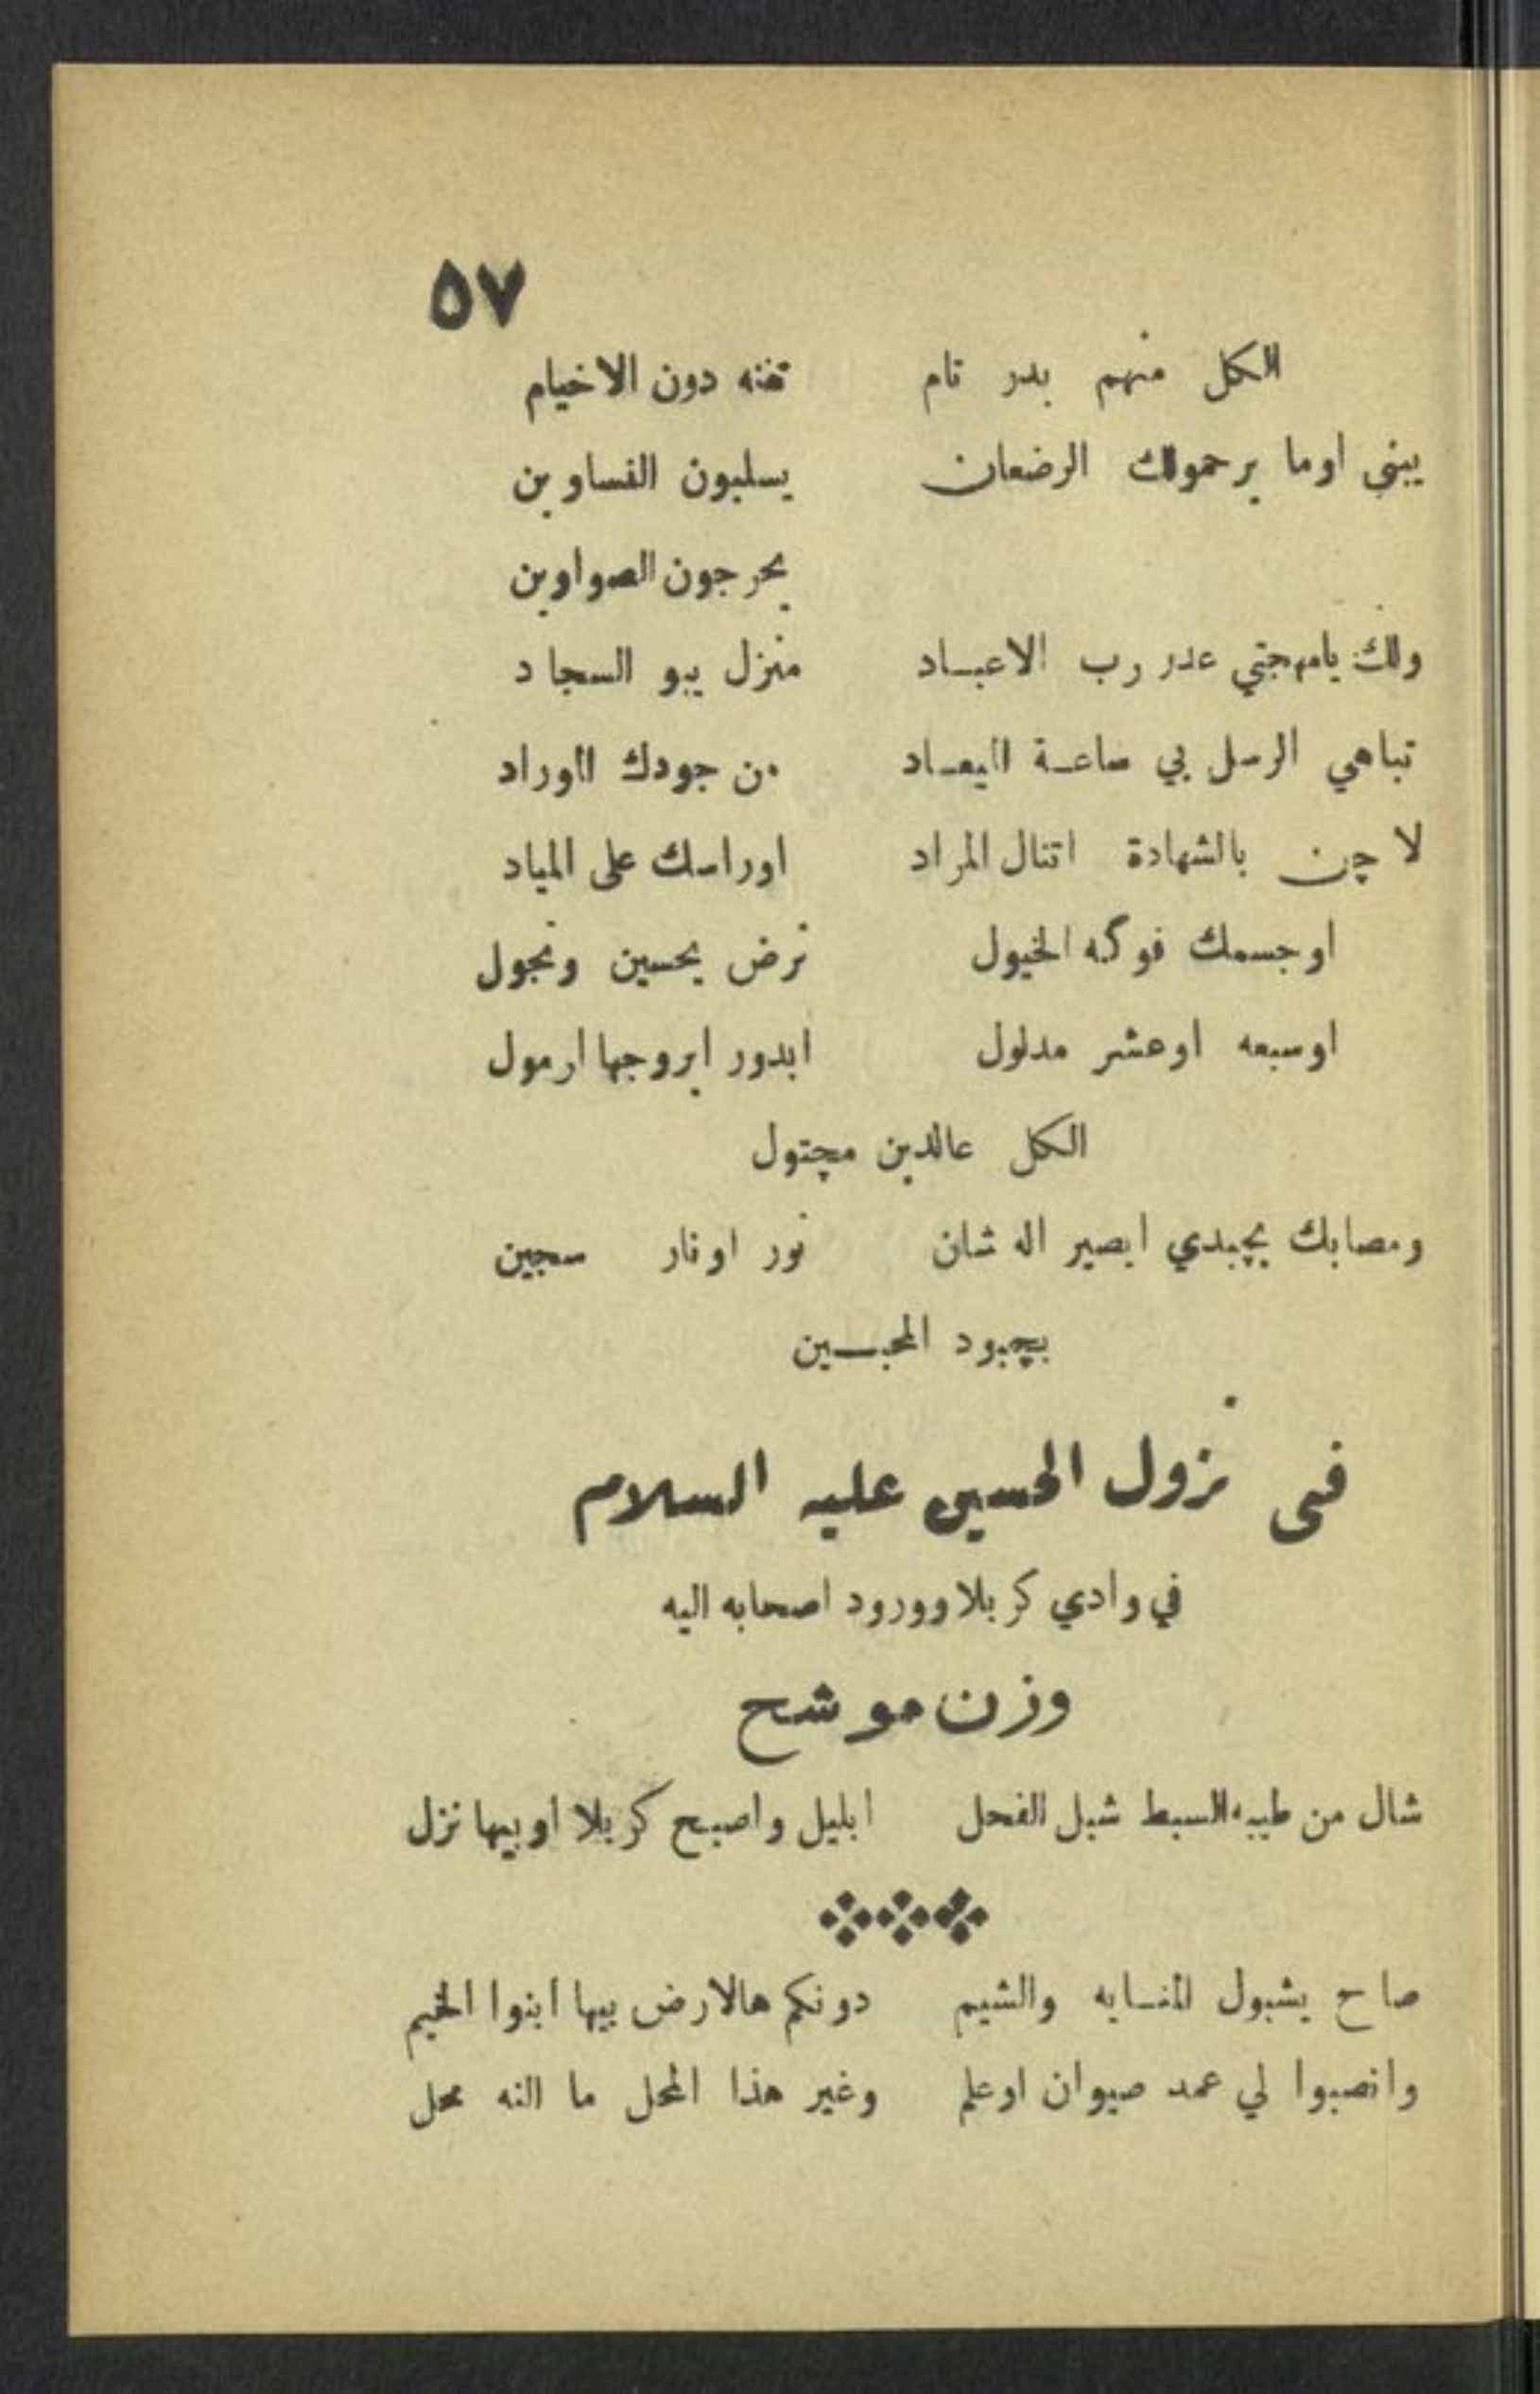 ٥٧
الكل منهم بدر تام تفنه دون الاخيام
يبني اوما يرحمولك الرضعان يسلبون النساوين
يحرجون الصواوين
ولك يامهجتي عند رب الاعبـاد منزل يبو السجاد
تباهي الرسل بي ساعـة الميعـاد من جودك الوراد
لا چن بالشهادة اتنال المراد اوراسك على المياد
اوجسمك فوگه الخيول ترض يحسين وتجول
اوسبعه اوعشر مدلول ابدور ابروجها ارمول
الكل عالدين مچتول
ومصابك بچبدي ابصير اله شان نور اونار سجين
بچبود المحبـين
في نزول الحسين عليه السلام
في وادي كربلا وورود اصحابه اليه
وزن موشح
شال من طيبه السبط شبل الفحل ابليل واصبح كربلا اوبيها نزل
صاح يشبول والشيم دونكم هالارض بيها ابنوا الخيم
وانصبوا لي عمد صيوان اوعلم وغير هذا المحل ما النه محل